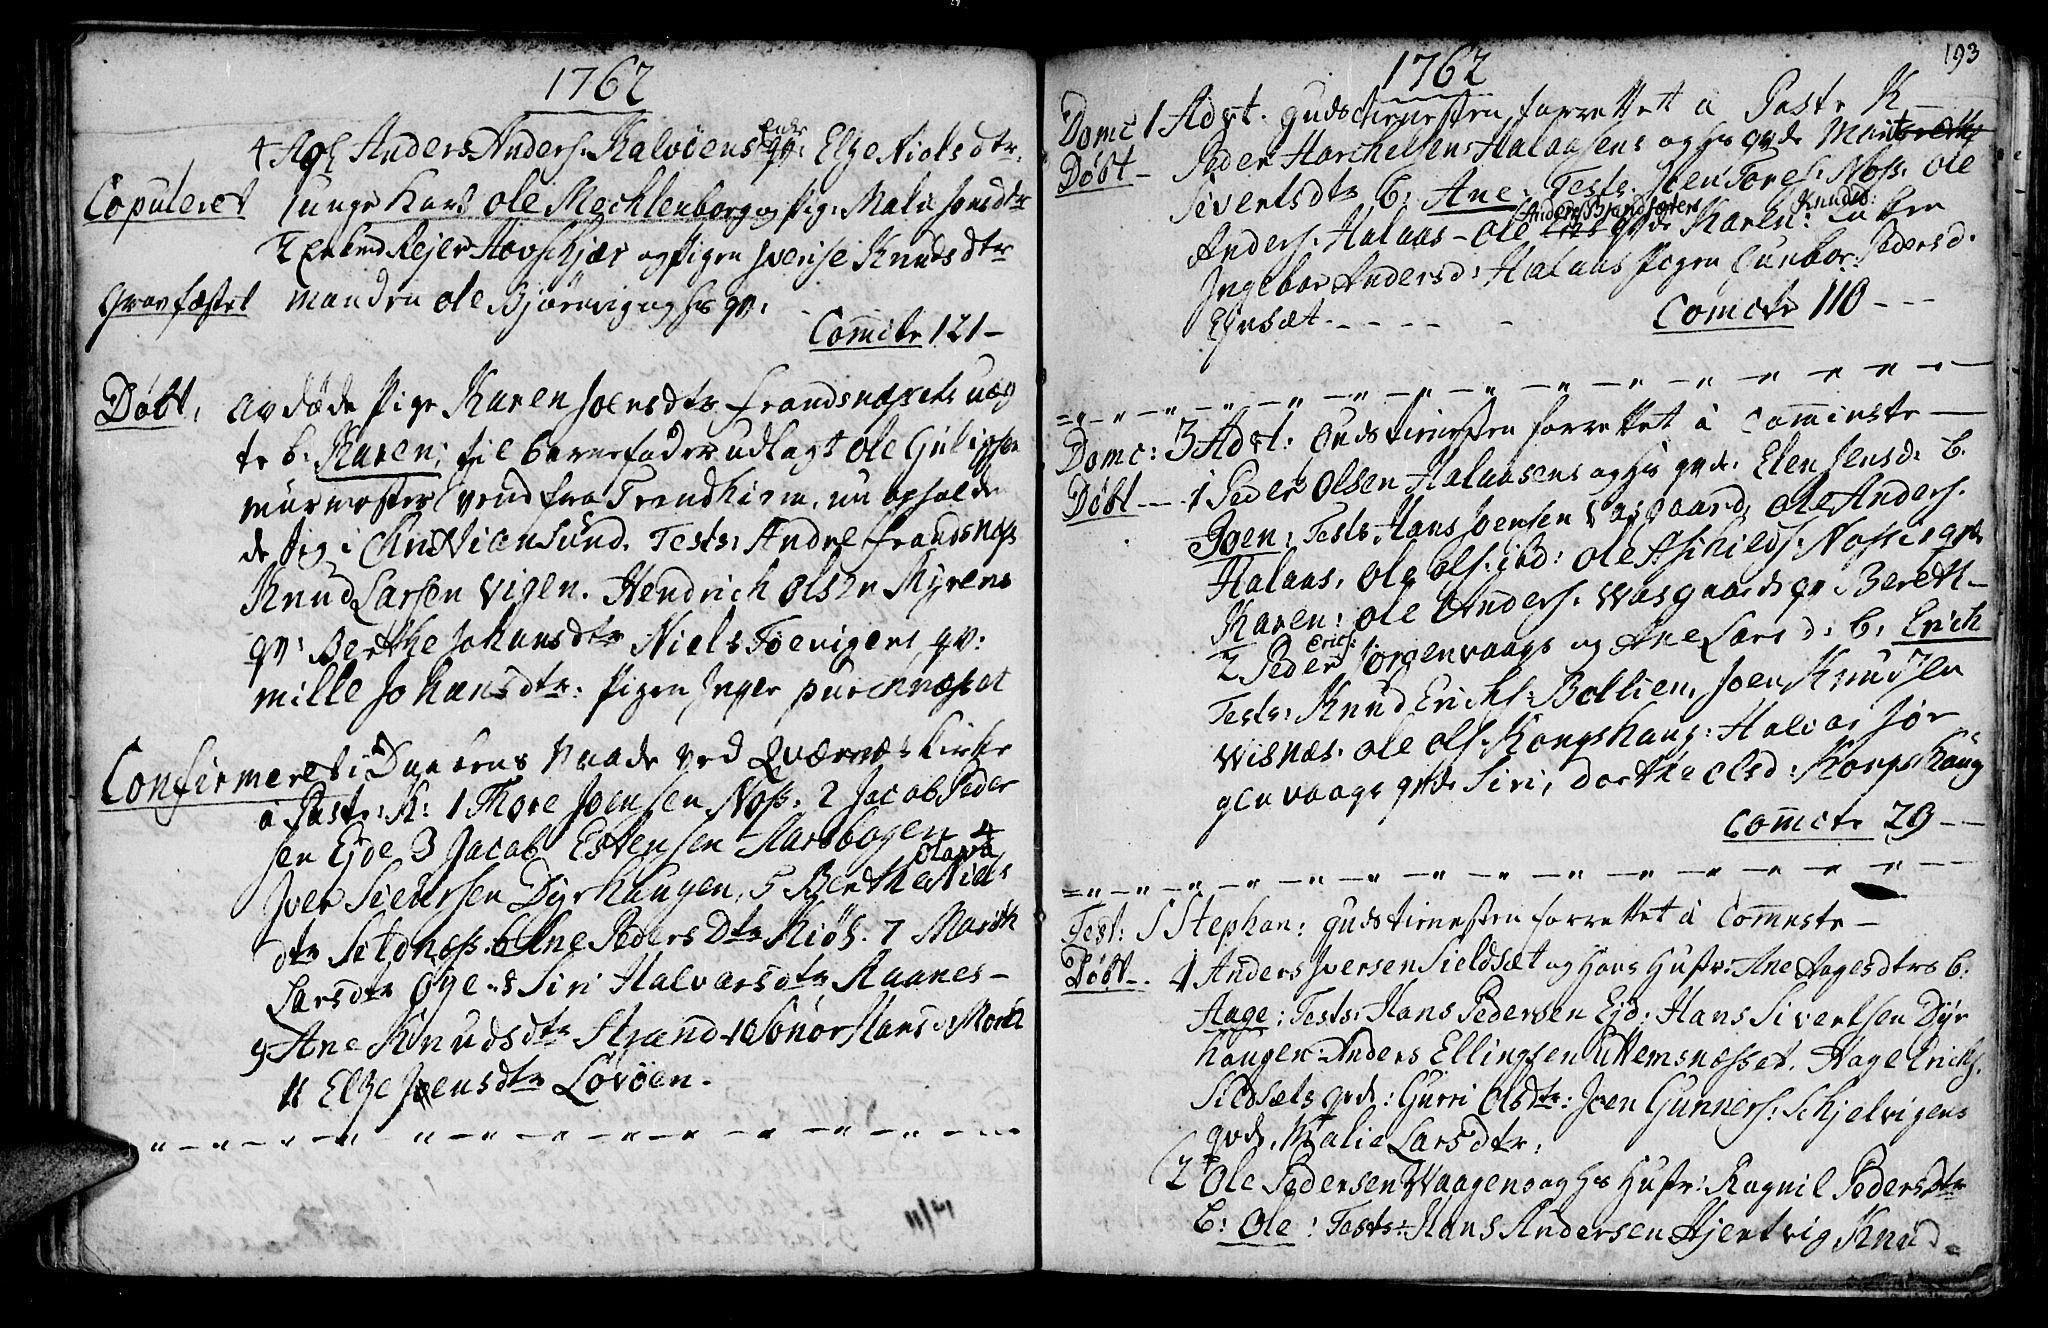 1762
4 Agl Anders Anders: Kalvöens Enke qv: Elge Niels dtr.
Copuleret Unge Karl Ole Mechlenborg og Pig: Malie Jonsdtr
Reier Hovskjær og Pigen Sverise Knudsdtr
Gravfæstet Manden Ole Björnvig og hs qv:
Comcte 121 –
Döbt, av döde Pige Karen Joensdtr Frandsnæsets uæg
te b. Karen; til barnefader udlagt Ole Guligsen
murmester svend fra Trondhiem, nu opholde
de sig i Christiensund. Tests: Andre Frandsnæs
Knud Larsen Vigen. Hendrich Olsen Myrens
qv: Berthe Johansdtr Niels Töevigens qv:
Mille Johansdtr: Pigen Inger purchnæsset
Confirmeret i Daabens Naade ved Qværnæs Kirke
á Past: K: 1 Thore Joensen Noss. 2 Jacob Peder
sen Eide 3 Jacob Estensen Harsbogen 4
Iver Siversen Dyrhaugen, 5 Berthe Olava Niels
dtr Seldnæss. 6 Ane Pedersdtr Kiöl. 7 Marith
Larsdtr Öye 8 Siri Halvarsdtr Raanes –
9 Ane Knudsdtr Strand 10 Sonör Hans d. Mork
11 Elge Joensdtr Lövöen.
11/14
193
1762
Domc 1 Advt. Gudstienesten forrettet á Paste K
Döbt – Peder Harchelsens Halaasens og hs qvde Marit
Sivertsdtr b: Ane. Tests. Joen Tores: Noss. Ole
Anders. Halaas – Ole Anders Brandsæters qvde Karen: Knuds:
Ingebor Andersd: Halaas Pigen Gunbor Pedersd.
Ejnsæt. – – – – – Comcte 110 – – –
Domc: 3 Advt: Gudstienesten forrettet á Cominste –
Döbt – – 1 Peder Olsen Halaasens og hs qvde. Elen Jensd: b.
Joen; Tests Hans Joensen Vasgaard, Ole Anders.
Halaas, Ole Ols. ibd: Ole Aschilds: Nosses qvde
Karen: Ole Anders. Wasgaards qv Bereth –
2 Peder Erichs: Jörgenvaags og Ane Lars d: b: Erich
Tests: Knud Erichs: Bollien, Joen Knudsen
Wisnæs. Ole Ols. Kongshaug: Halvor Jör
genvaags qvde Siri, Dorthe Olsd: Kongshaug
Comcte 29 – –
Fest: S Stephan: Gudstienesten forrettet á Comeste –
Döbt – . 1 Anders Iversen Sieldsæt og Hans Hustr: Ane Aagesdtr b:
Aage: Tests: Hans Pedersen Ejd: Hans Sivertsen Dyr
haugen: Anders Ellingsen Utemsnæsset. Aage Erichs.
Sildsæts qvd: Gurri Olsdtr: Joen Gunners: Schjelvigens
qvd. Malie Larsdtr:
2 Ole Pedersen Waagens og hs Hustr: Ragnil Pedersdtr
b: Ole: Tests: Hans Andersen Hjertvig Knud –